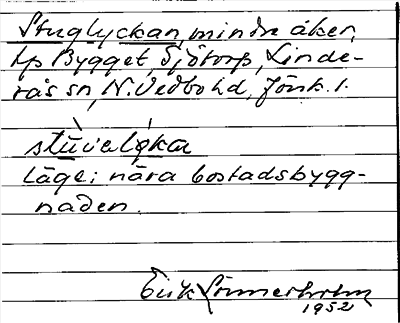 Stuglyckan, mindre åker,
tp Bygget, Sjötorp, Linde-
rås sn, N. Vedbo hd, Jönk. l.
stùvelø̀ka
Läge: nära bostadsbygg-
naden.
Erik Linnerholm
1952